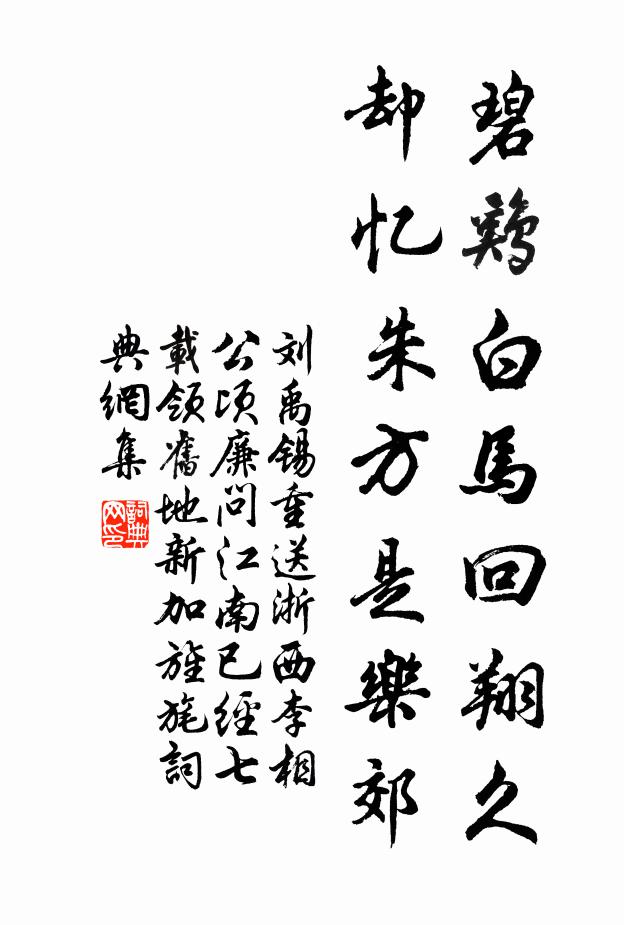 碧鷄白馬回翔久
却忆朱方是樂郊
刘禹锡重送浙西李相
公顷廉问江南已經七
載领舊地新加旌旄詞
典網集
詞典
网印